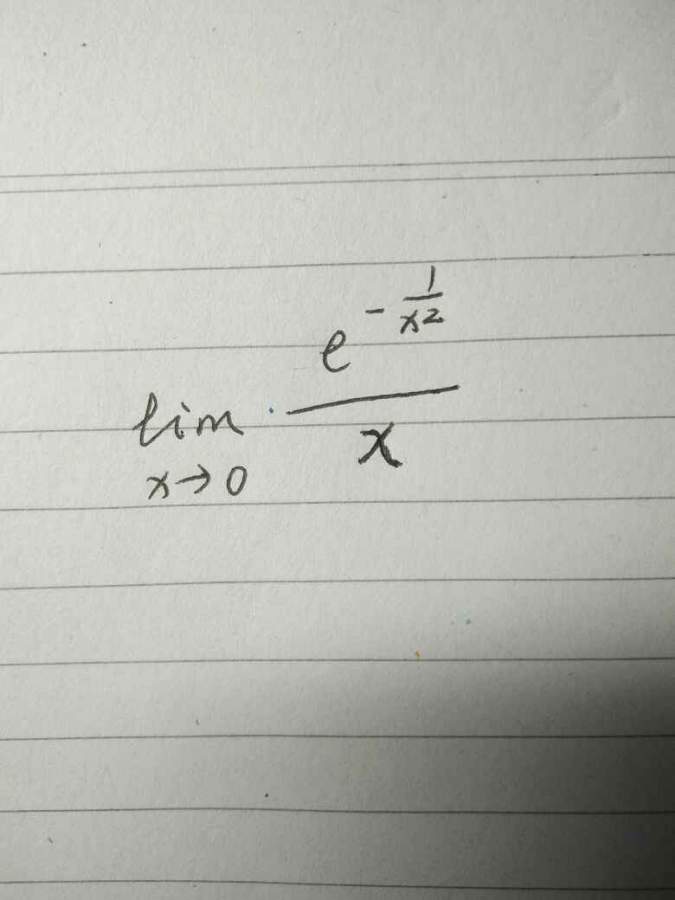 lim_{x→0} \frac{e^{-\frac{1}{x^2}}}{x}